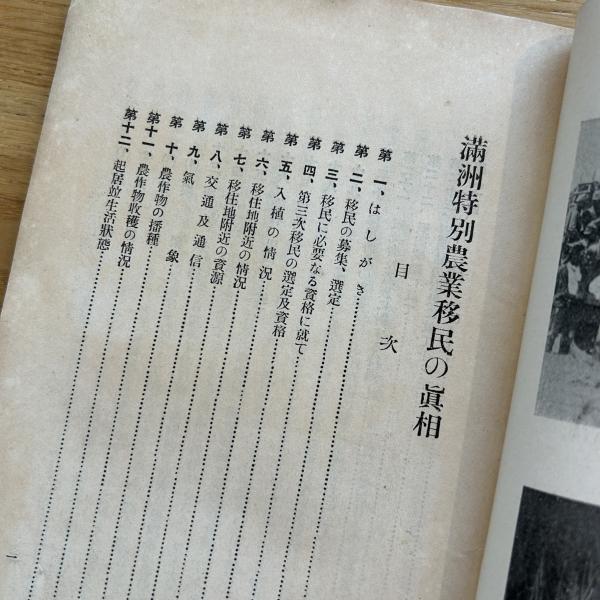 滿洲特別農業移民の眞相
目次
第一、はしがき
第二、移民の募集、選定
第三、移民に必要なる資格に就て
第四、第三次移民の選定及資格
第五、入植の情況
第六、移住地附近の情況
第七、移住地附近の資源
第八、交通及通信
第九、氣象
第十、農作物の播種
第十一、農作物收穫の情況
第十二、起居竝生活狀態
一